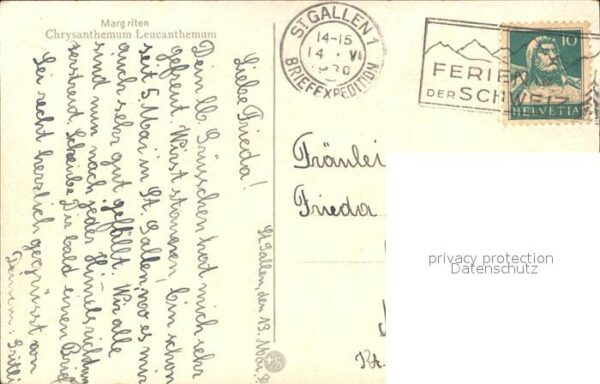 Margriten
Chrysanthemum Leucanthemum
ST. GALLEN 1
14-15
14. VI
1930
BRIEFEXPEDITION
FERIEN
DER SCHWEIZ
10
HELVETIA
St. Gallen, den 13. Mai
Liebe Frieda!
Dein lb. Grüsschen hat mich sehr
gefreut. Wirst staunen, bin schon
seit 5. Mai in St. Gallen, wo es mir
auch sehr gut gefällt. Wir alle
sind nun nach jeder Himmelsrichtung
zerstreut. Schreibe Dir bald einen Brief
Sei recht herzlich gegrüsst von
Deinem: Gritli
Fräulei
Frieda
Kt.
privacy protection
Datenschutz